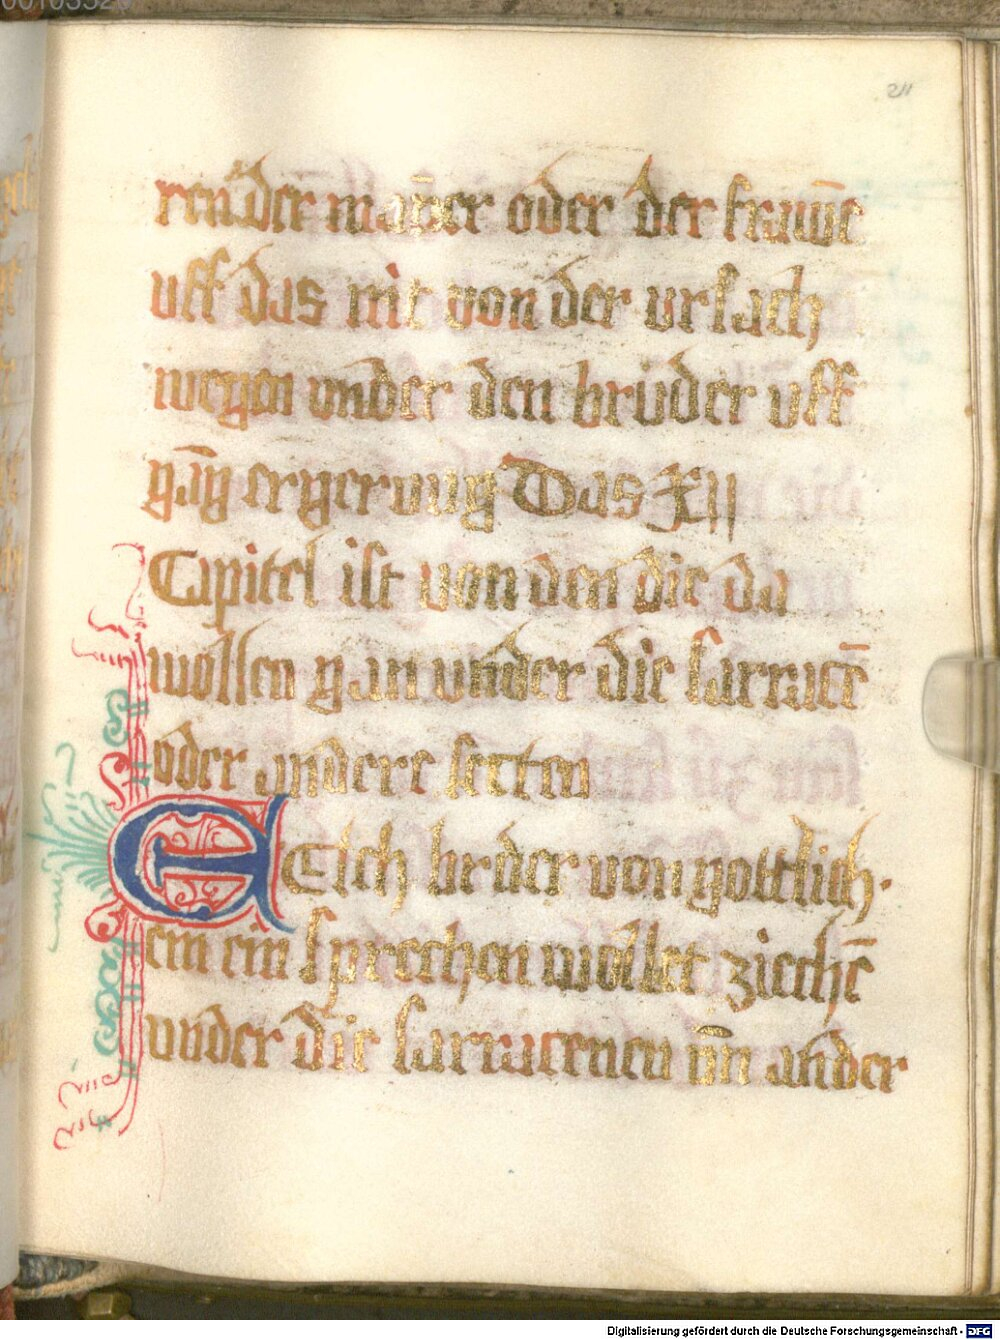 00103520
211
ren der mañer oder der frauwē
uff das nit von der ursach
wegen under den brüder uff
gāg ergerung Das XII
Capitel ist von den die da
wollen gan under die sarracē
oder andere secten
Etlich bruder von gottlich
em ein sprechen wöllet ziechē
under die sarracenen uñ ander
Digitalisierung gefördert durch die Deutsche Forschungsgemeinschaft - DFG